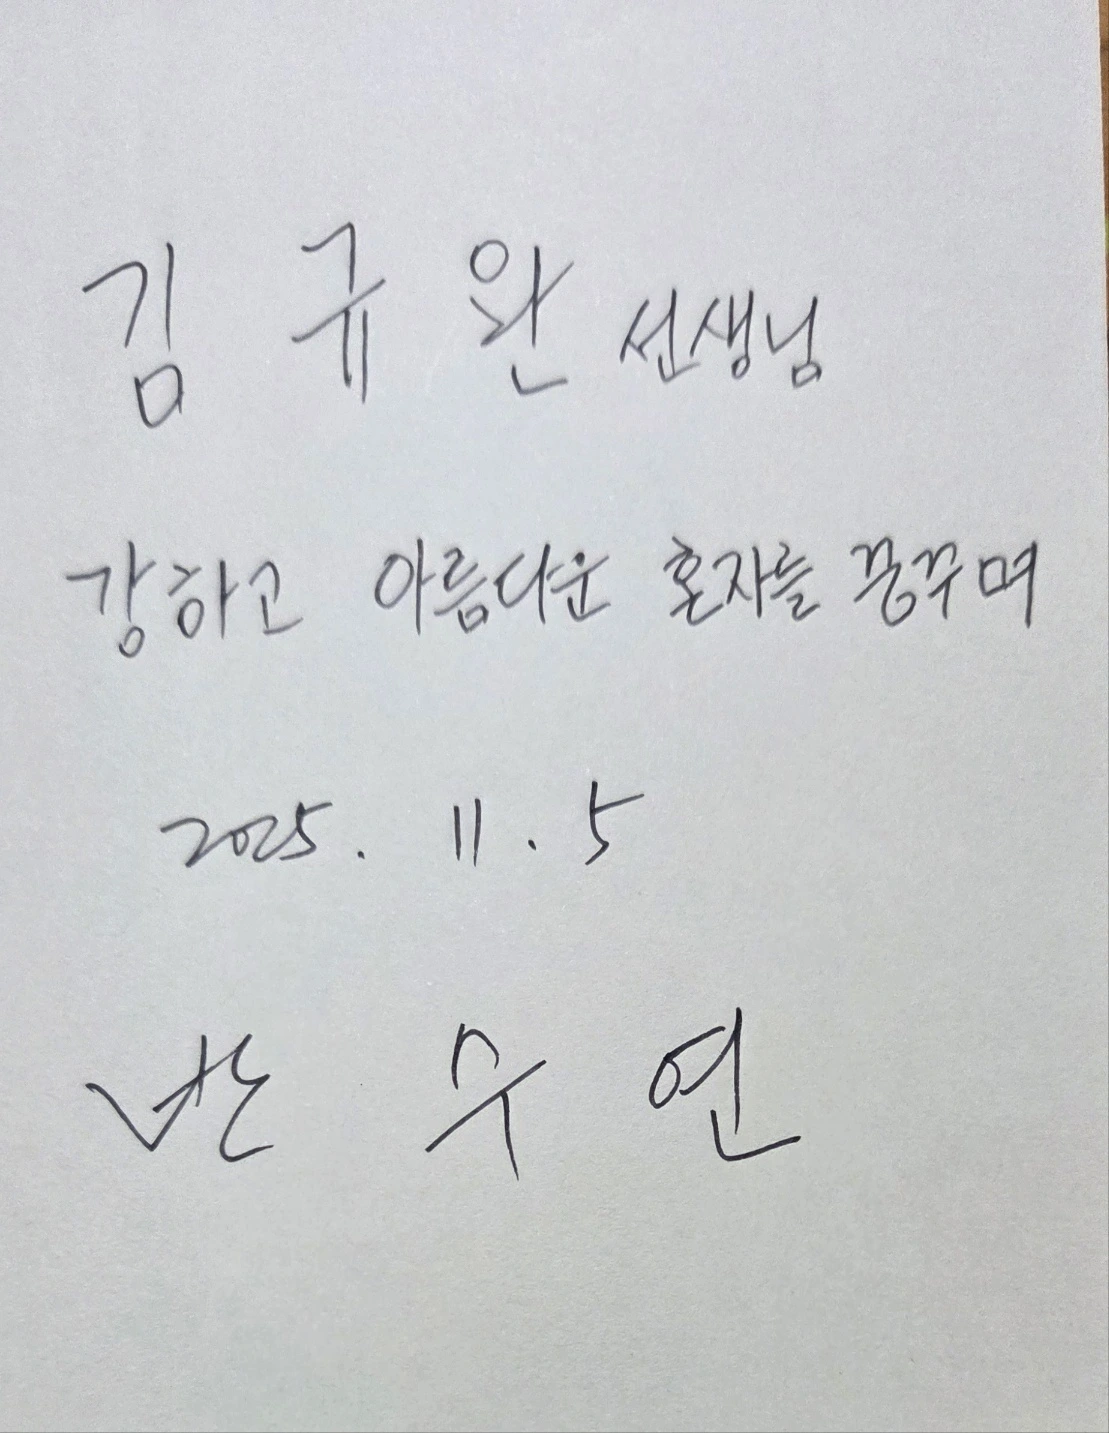 김규완 선생님
강하고 아름다운 혼자를 꿈꾸며
2025. 11. 5